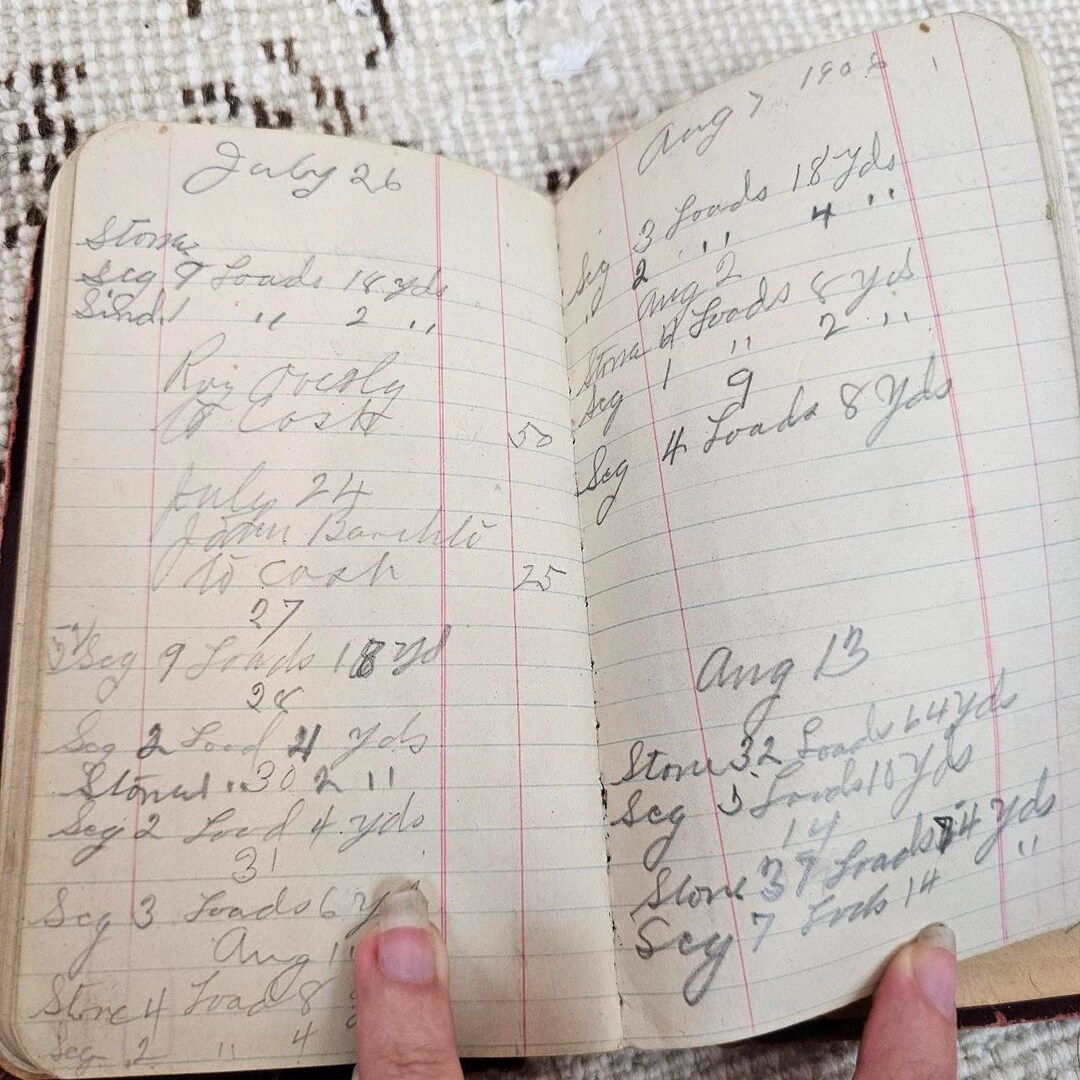 July 26
Stone
Scg 9 Loads 18 yds
Sind 1 " 2 "
Roy Overly
To Cash 50
July 24
John
to cash 25
27
Scg 9 Loads 18 yd
28
Scg 2 Load 4 yds
Stone 1 " 2 "
30
Scg 2 Load 4 yds
31
Scg 3 Loads 6
Aug 1
Stone 4 Load 8
Scg 2 " 4
Aug 7 1908
Scg 3 Loads 18 yds
" 2 " 4 "
Aug 2
Stone 4 Loads 8 yd
Scg 1 " 2 "
9
Scg 4 Loads 8 yds
Aug 13
Stone 32 Loads 64 yds
Scg 5 Loads 10 yds
14
Stone 37 Loads 74 yds
Scg 7 Lods 14 "